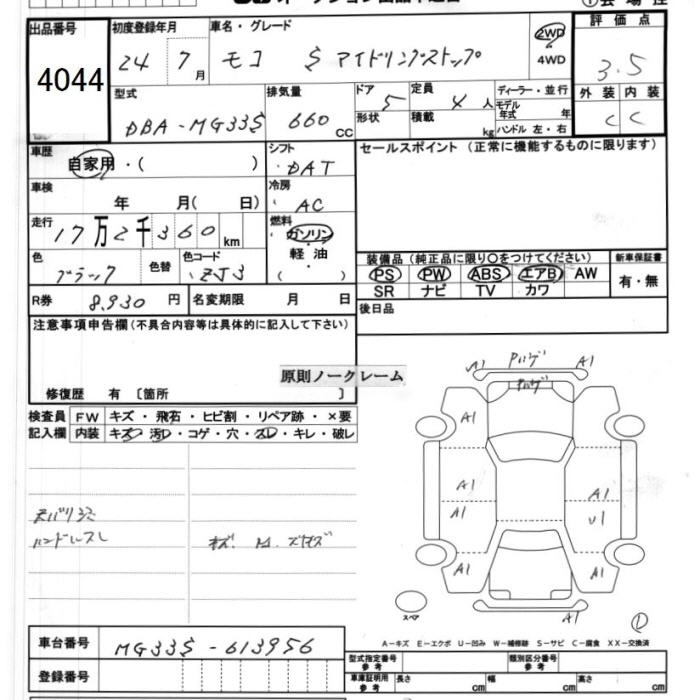 出品番号 初度登録年月 車名・グレード 2WD 4WD 評価点
4044 24年 7月 モコ S アイドリングストップ 3.5
型式 排気量 ドア 定員 ディーラー・並行 外装 内装
DBA-MG33S 660 CC 5 4人 モデル年式 年 C C
形状 積載 kg ハンドル 左・右
車歴 シフト セールスポイント (正常に機能するものに限ります)
自家用・( ) DAT
車検 冷房
年 月( 日) AC
走行 燃料
17万2千360km ガソリン
軽油
( )
色 色替 色コード 装備品 (純正品に限り○をつけてください) 新車保証書
ブラック ZJ3 PS PW ABS エアB AW 有・無
SR ナビ TV カワ
R券 8,930円 名変期限 月 日 後日品
注意事項申告欄 (不具合内容等は具体的に記入して下さい)
原則ノークレーム
修復歴 有 〔箇所 〕
検査員 FW キズ・飛石・ヒビ割・リペア跡・×要
記入欄 内装 キズ・汚レ・コゲ・穴・スレ・キレ・破レ
ハンドルスレ
A1 A1
A1
A1 A1
A1 U1
A1 A1
A1
スペア
A-キズ E-エクボ U-凹み W-補修跡 S-サビ C-腐食 XX-交換済
車台番号 MG33S-613956
登録番号
型式指定番号 参考 類別区分番号 参考
車庫証明用 参考 長さ cm 幅 cm 高さ cm